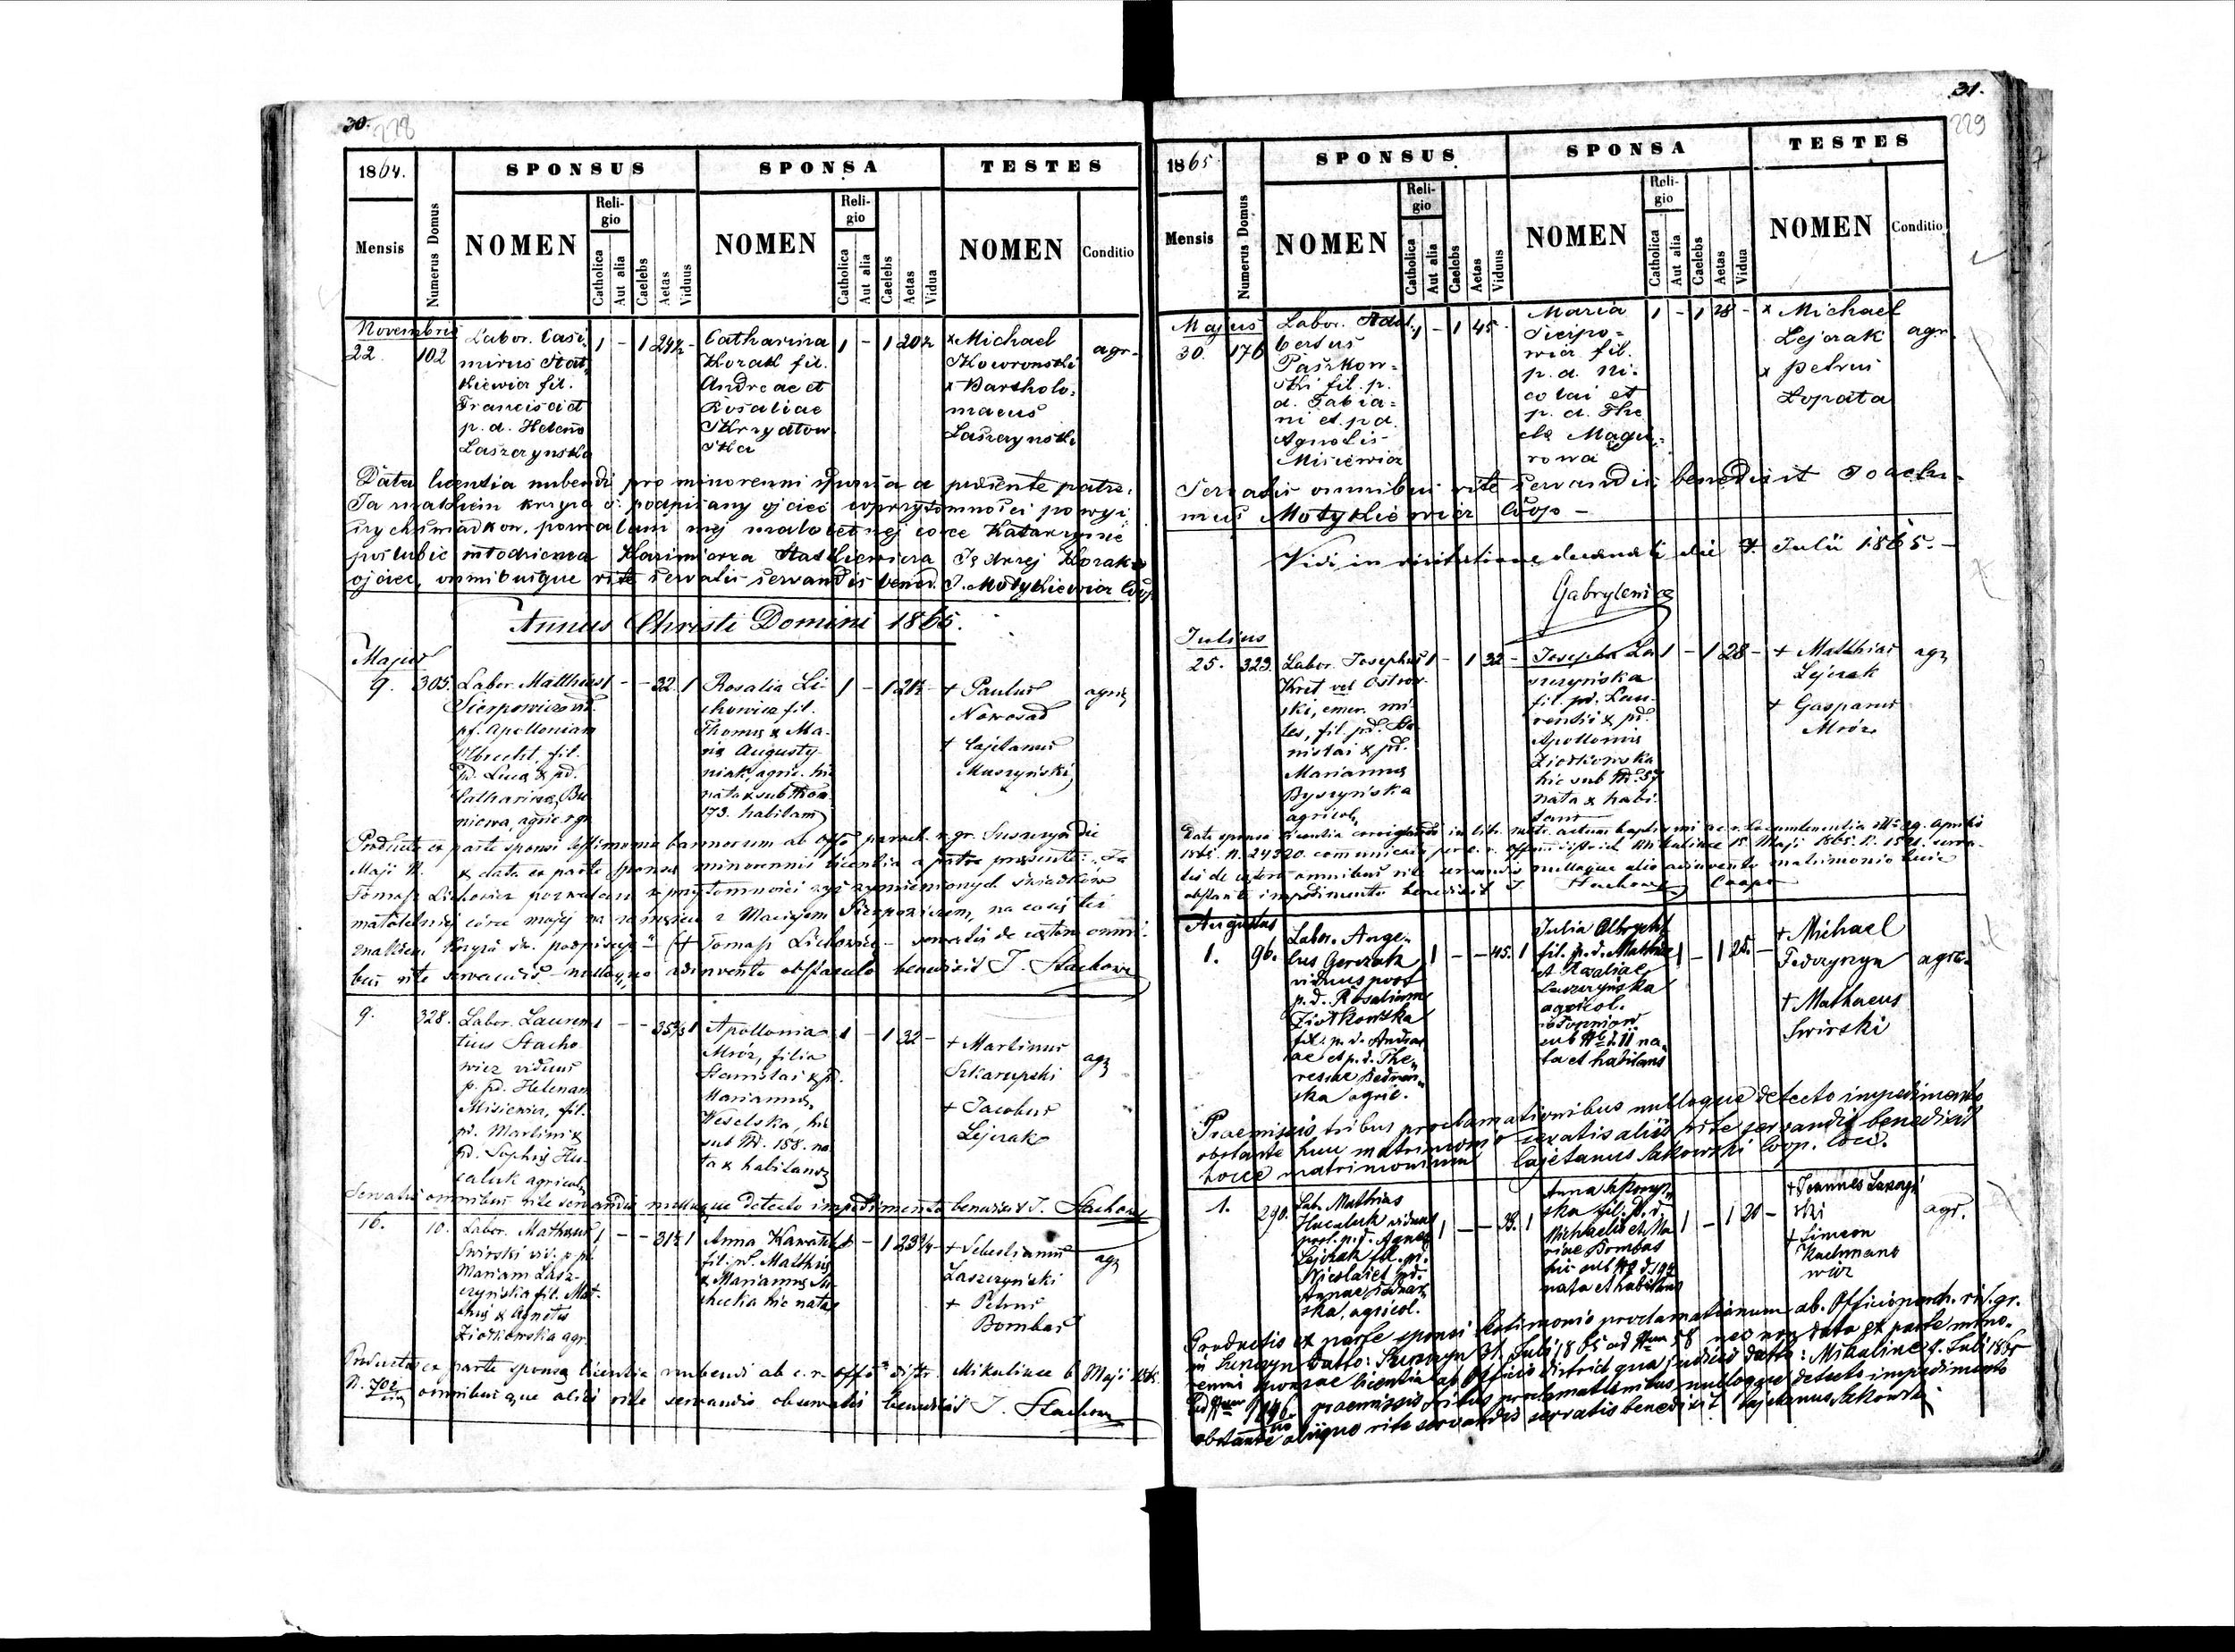 30.
228
1864.
SPONSUS
SPONSA
TESTES
Mensis
Numerus Domus
NOMEN
Religio
Catholica
Aut alia
Caelebs
Aetas
Viduus
NOMEN
Religio
Catholica
Aut alia
Caelebs
Aetas
Vidua
NOMEN
Conditio
Novembris
22.
102
Labor. Casi-
mirus Stat
kiewicz fil.
Francisci et
p. d. Helena
Laszczynska
1 - 1 24½ -
Catharina
Korak fil.
Andreae et
Rosaliae
Skrzydłow
ska
1 - 1 20½
x Michael
Skowronski
x Bartholo-
maeus
Laszczynski
agr.
Data licentia nubendi pro minorenni sponsa a presente patre.
Ja znakiem krzyża ś. podpisany ojciec w przytomności powyż
szych świadków, pozwalam mej małoletniej córce Katarzynie
poślubić młodzieńca Kazimierza Statkiewicza Jędrzej Korak
ojciec, omnibusque rite servatis servandis bened. J. Motykiewicz Coop.
Annus Christi Domini 1865.
Majus
9.
305.
Labor. Matthias
Sierpowicz vid.
p. Apolloniam
Olbrecht, fil.
pd. Luca & pd.
Catharina, Bu
niowa, agric.
1 - - 32 1
Rosalia Li-
chowicz fil.
Thomae & Ma-
ria Augusty-
niak, agric. hic
nata & sub
173. habitans
1 - 1 21½ -
+ Paulus
Nowosad
+ Cajetanus
Muszyński
agric
Producto ex parte sponsi testimonio bannorum ab offo paroch. r. gr. Suszczyn die
Maji & data ex parte sponsae minorennis licentia a patre presente: Ja
Tomasz Lichowicz pozwalam w przytomności wyż wymienionych świadków
małoletniej córce mojej za z Maciejem Sierpowiczem, na co się
znakiem krzyża św. podpisuję" (+ Tomasz Lichowicz - servatis de cetero omni-
bus rite servandis nulloque adinvento obstaculo benedixit J. Stachow
9.
328.
Labor. Lauren
tius Stacho
wicz viduus
p. pd. Helenam
Misiewicz, fil.
pd. Martini &
pd. Sophia Hu-
caluk agricol.
1 - - 35 1
Apollonia
Mróz, filia
Stanislai & pd.
Marianna,
Weselska, hic
sub Nr. 158. na-
ta & habitans
1 - 1 32 -
+ Martinus
Szkarupski
+ Jacobus
Lejczak
agr
Servatis omnibus rite servandis nulloque detecto impedimento benedixit J. Stachow
16.
10.
Labor. Mathaeus
Swirski vid. p. pd.
Mariam Lasz-
czynska fil. Mat-
thia & Agnetis
Ziotkowska agr.
1 - - 31½ 1
Anna
fil. pd. Matthia
& Marianna
hic nata
1 - 1 23¼ -
+ Sebastianus
Laszczyński
+ Petrus
Bombas
agr
Producta ex parte sponsa licentia nubendi ab c. r. offo distr. Mikulince 6 Maji 1865.
N. 702 omnibusque aliis rite servandis observatis benedixit J. Stachow
31.
229
1865
SPONSUS
SPONSA
TESTES
Mensis
Numerus Domus
NOMEN
Religio
Catholica
Aut alia
Caelebs
Aetas
Viduus
NOMEN
Religio
Catholica
Aut alia
Caelebs
Aetas
Vidua
NOMEN
Conditio
Majus
30.
176
Labor. Adal-
bertus
Paszkow-
ski fil. p.
d. Fabia-
ni et p. d.
Agnetis
Misiewicz
1 - 1 45 -
Maria
Sierpo-
wicz fil.
p. d. Ni-
colai et
p. d. The
cla Magie-
rowa
1 - 1 28 -
x Michael
Lejczak
x Petrus
Łopata
agr.
Servatis omnibus rite servandis benedixit Joachi-
mus Motykiewicz Coop -
Vidi in visitatione decanali die 7. Julii 1865. -
Gabrylewicz
Julius
25.
323.
Labor. Josephus
Kret vel Ostrow-
ski, emer. mi-
les, fil. pd. Sta-
nislai & pd.
Marianna
Byszyńska
agricol.
1 - 1 32 -
Josepha La
szczyńska
fil. pd. Lau-
rentii & pd.
Apollonia
Ziotkowska
hic sub Nr. 57
nata & habi-
tans
1 - 1 28 -
+ Matthias
Lejczak
+ Gasparus
Mróz
agr
1865. N. 24320. Mikulince 15. Maji 1865. N. 1521. serva-
tis de cetero omnibus rite servandis nulloque alio adinvento matrimonio huic
obstante impedimento benedixit J. Stachow Coop
Augustus
1.
96.
Labor. Ange-
lus Gerczak
viduus post
p. d. Rosaliam
Ziotkowska
fil. p. d. Andre
ae et p. d. The-
resiae Bednar-
ska agric.
1 - - 45. 1
Julia Olbrycht
fil. p. d. Mathiae
et Rosaliae
Laszczyńska
agricol.
sub Nr. d. 11 na-
ta et habitans
1 - 1 25. -
+ Michael
Fedczyszyn
+ Mathaeus
Swirski
agric.
Praemissis tribus proclamationibus nulloque detecto impedimento
obstante huic matrimonio servatis aliis rite servandis benedixit
hocce matrimonium Cajetanus Sakowski Coop. loci.
1.
290.
Lab. Mathias
Hucaluk viduus
post. p. d. Agnes
Lejczak fil. pd.
Nicolai et pd.
Annae Bednar
ska, agricol.
1 - - 39. 1
Anna
ska fil. p. d.
Michaelis et Ma
riae Bombas
hic sub Nr. d. 194
nata et habitans
1 - 1 21 -
+ Joannes Laszczyń
ski
+ Simeon
Kuchmano
wicz
agr.
Productis ex parte sponsi testimonio proclamationum ab. Officio paroch. rit. gr.
in Suszczyn datto: Suszczyn 31. Juli 1865 ad Nrum 58 nec non data ex parte mino-
renni sponsae licentia ab Officio district qua judicio datto: Mikulince 1. Juli 1865
ad Nrum praemissis tribus proclamationibus nulloque detecto impedimento
obstante aliisque rite servandis servatis benedixit Cajetanus Sakowski.